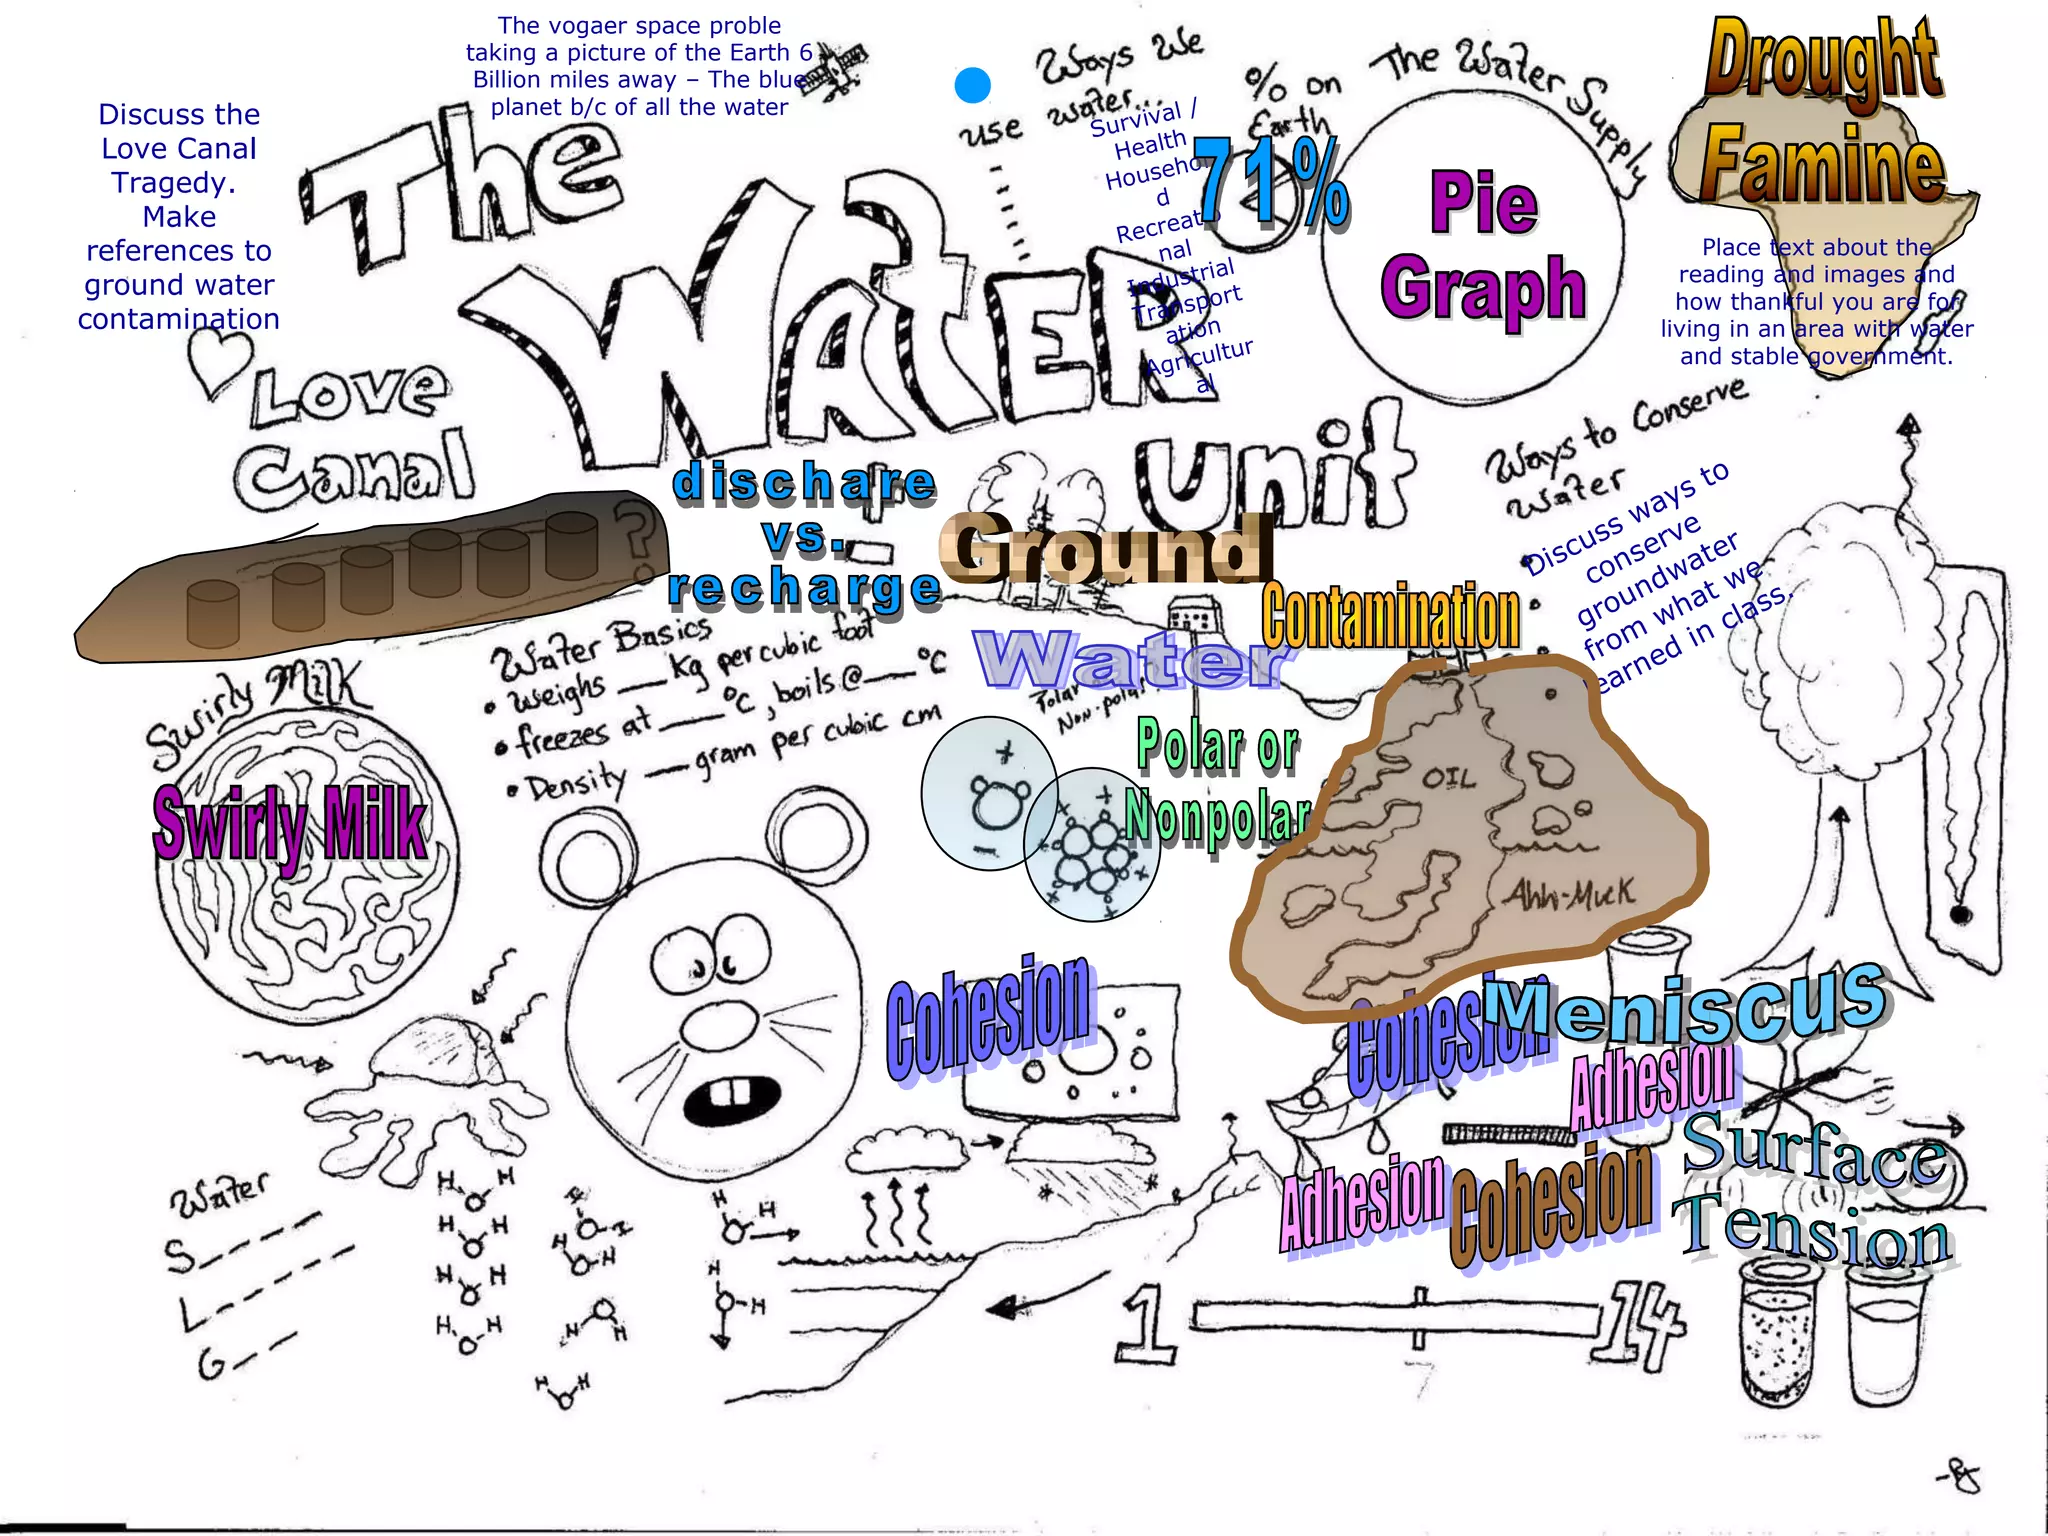 The vogaer space proble
taking a picture of the Earth 6
Billion miles away – The blue
planet b/c of all the water
Discuss the
Love Canal
Tragedy.
Make
references to
ground water
contamination
The
Water
Unit
Ways We
use water...
Survival /
Health
Househol
d
Recreatio
nal
Industrial
Transport
ation
Agricultur
al
% on
Earth
71%
The Water Supply
Pie
Graph
Drought
Famine
Place text about the
reading and images and
how thankful you are for
living in an area with water
and stable government.
Love
Canal
?
dischare
vs.
recharge
Ground
Water
Contamination
Ways to Conserve
Water
Discuss ways to
conserve
groundwater
from what we
learned in class.
Water Basics
• weighs __ kg per cubic foot
• freezes at ___ °C, boils @ ___ °C
• Density __ gram per cubic cm
Polar or
Non-polar?
Polar or
Nonpolar
+
-
OIL
Ahh-Muck
Swirly Milk
Swirly Milk
Cohesion
Cohesion
Meniscus
Adhesion
Surface
Tension
Adhesion
Cohesion
Water
S_ _ _ _ _
L_ _ _ _ _
G_ _ _
H H
H H
H H
H H
H
H
H
H H
H H
H H
H
H
1
14
7